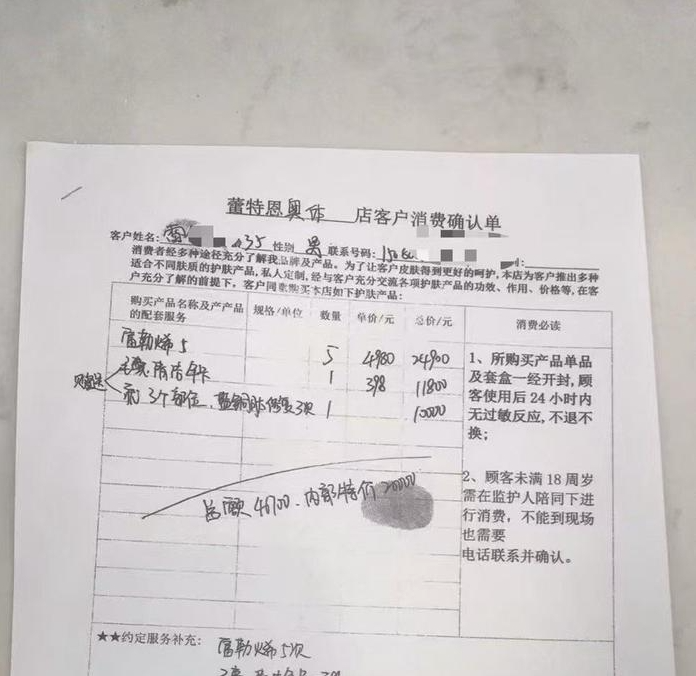 蕾特恩奥体 店客户消费确认单
客户姓名: 雷 35 性别 男 联系号码: 150
消费者经多种途径充分了解我品牌及产品。为了让客户皮肤得到更好的呵护,本店为客户推出多种
适合不同肤质的护肤产品,私人定制,经与客户充分交流各项护肤产品的功效、作用、价格等,在客
户充分了解的前提下,客户同意购买本店如下护肤产品:
购买产品名称及产产品的配套服务 规格/单位 数量 单价/元 总价/元 消费必读
富勒烯5 5 4980 24900
清洁年卡 1 398 11800
3个部位、 修复3次 1 10000
总额46700、内部特价20000
1、所购买产品单品
及套盒一经开封,顾
客使用后24小时内
无过敏反应,不退不
换;
2、顾客未满18周岁
需在监护人陪同下进
行消费,不能到现场
也需要
电话联系并确认。
★★约定服务补充: 富勒烯5次